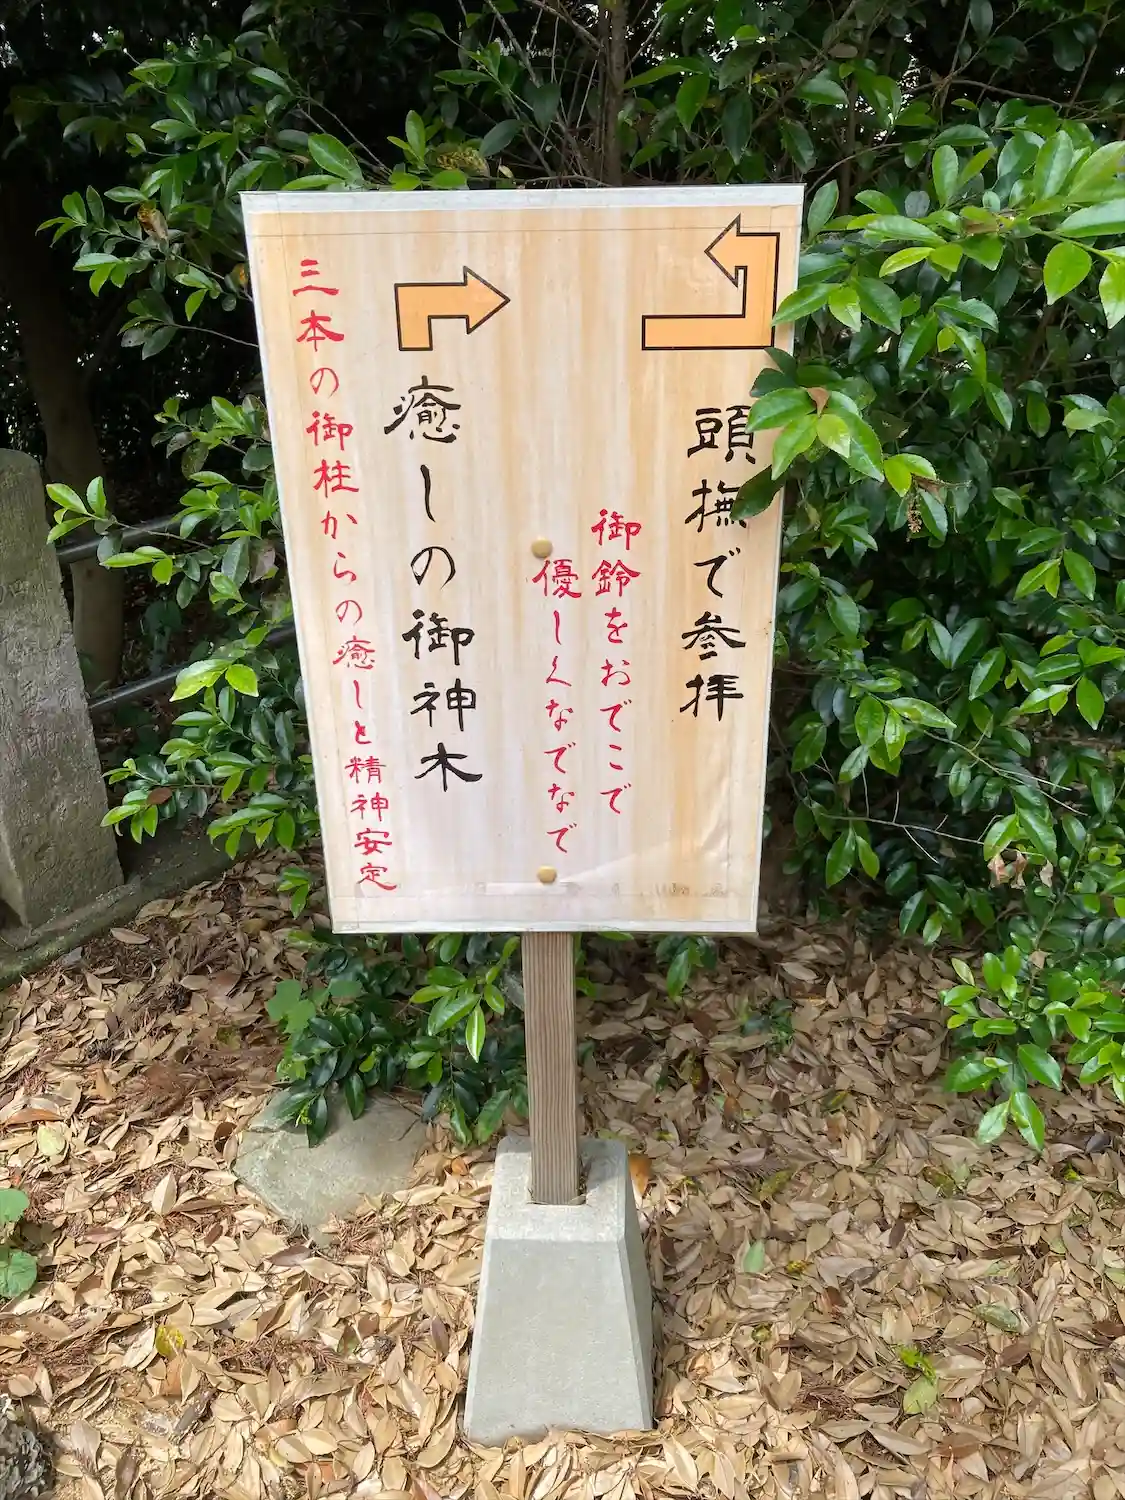 頭撫で参拝
御鈴をおでこで
優しくなでなで
癒しの御神木
三本の御柱からの癒しと精神安定